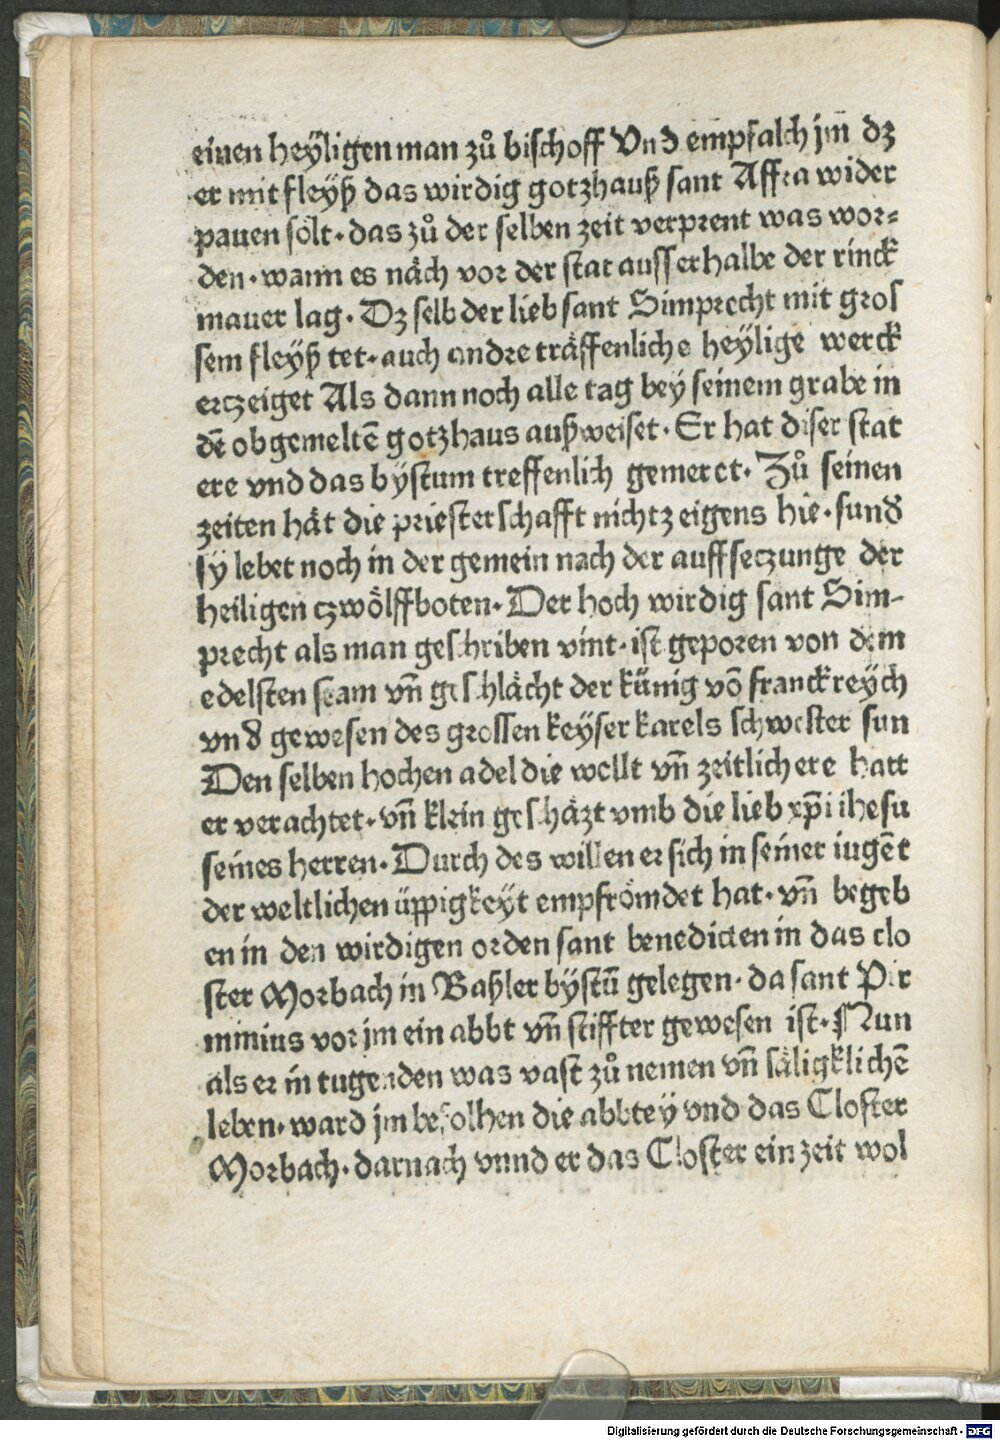 einen heÿligen man zů bischoff Vnd empfalch jm̄ dz
er mit fleÿß das wirdig gotzhauß sant Affra wider
pauen sölt · das zů der selben zeit verprent was wor⸗
den · wann es näch vor der stat ausserhalbe der rinck
mauer lag · Dz selb der lieb sant Simprecht mit gros
sem fleÿß tet · auch andre träffenliche heÿlige werck
erczeiget Als dann noch alle tag bey seinem grabe in
dē obgemeltē gotzhaus außweiset · Er hat diser stat
ere vnd das bÿstum treffenlich gemeret · Zů seinen
zeiten hät die priesterschafft nichtz eigens hie · sunď
sÿ lebet noch in der gemein nach der auffseczunge der
heiligen czwölffboten · Der hoch wirdig sant Sim-
precht als man geschriben vint · ist geporen von dem
edelsten stam vn̄ geschlächt der künig vō franckreÿch
vnď gewesen des grossen keÿser karels schwester sun
Den selben hochen adel die wellt vn̄ zeitlich ere hatt
er verachtet · vn̄ klein geschäzt vmb die lieb xp̄i ihesu
seines herren · Durch des willen er sich in seiner iugēt
der weltlichen üppigkeÿt empfrömdet hat · vn̄ begeb
en in den wirdigen orden sant benedicten in das clo
ster Morbach in Baßler bÿstū gelegen · da sant Pir
minius vor jm ein abbt vn̄ stiffter gewesen ist · Nun
als er in tugenden was vast zů nemen vn̄ säligklichē
leben · ward jm befolhen die abbtey vnd das Closter
Morbach · darnach vnnd er das Closter ein zeit wol
Digitalisierung gefördert durch die Deutsche Forschungsgemeinschaft - DFG